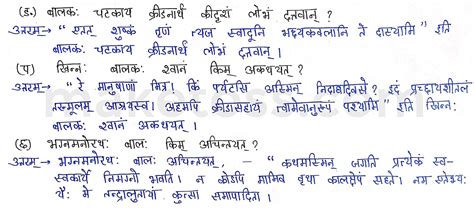 (ङ) बालकः चटकाय क्रीडनार्थं कीदृशं लोभं दत्तवान् ?
उत्तरम्→ "एतत् शुष्कं तृणं त्यज स्वादूनि भक्ष्यकवलानि ते दास्यामि" इति
बालकः चटकाय क्रीडनार्थं लोभं दत्तवान् ।
(च) खिन्नः बालकः श्वानं किम् अकथयत् ?
उत्तरम्→ रे मानुषाणां मित्र ! किं पर्यटसि अस्मिन् निदाघदिवसे ? इदं प्रच्छायशीतलं
तरुमूलम् आश्रयस्व । अहमपि क्रीडासहायं त्वामेवानुरूपं पश्यामि" इति खिन्नः
बालकः श्वानं अकथयत् ।
(छ) भग्नमनोरथः बालः किम् अचिन्तयत् ?
उत्तरम्→ भग्नमनोरथः बालः अचिन्तयत्, - "कथमस्मिन् जगति प्रत्येकं स्व-
स्वकार्ये निमग्नो भवति । न कोऽपि मामिव वृथा कालक्षेपं सहते । नम एतेभ्यः
यैः मे तन्द्रालुतायां कुत्सा समापादिता ।